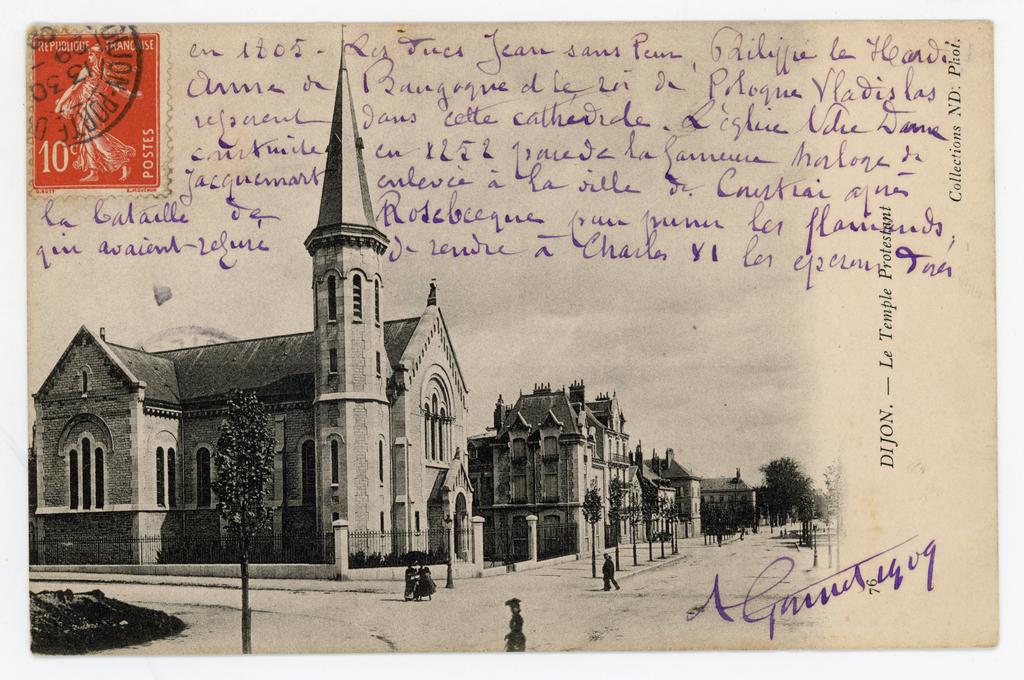 REPUBLIQUE FRANÇAISE
10c POSTES
DIJON
en 1805 - Les ducs Jean sans Peur, Philippe le Hardi
Anne de Bourgogne et le roi de Pologne Vladislas
reposent dans cette cathédrale. L'église Notre Dame
construite en 1252 possède la fameuse horloge de
Jacquemart enlevée à la ville de Courtrai après
la bataille de Rosebecque pour punir les flamands,
qui avaient refusé de rendre à Charles VI les eperons dorés
DIJON. — Le Temple Protestant
Collections ND. Phot.
76
1909